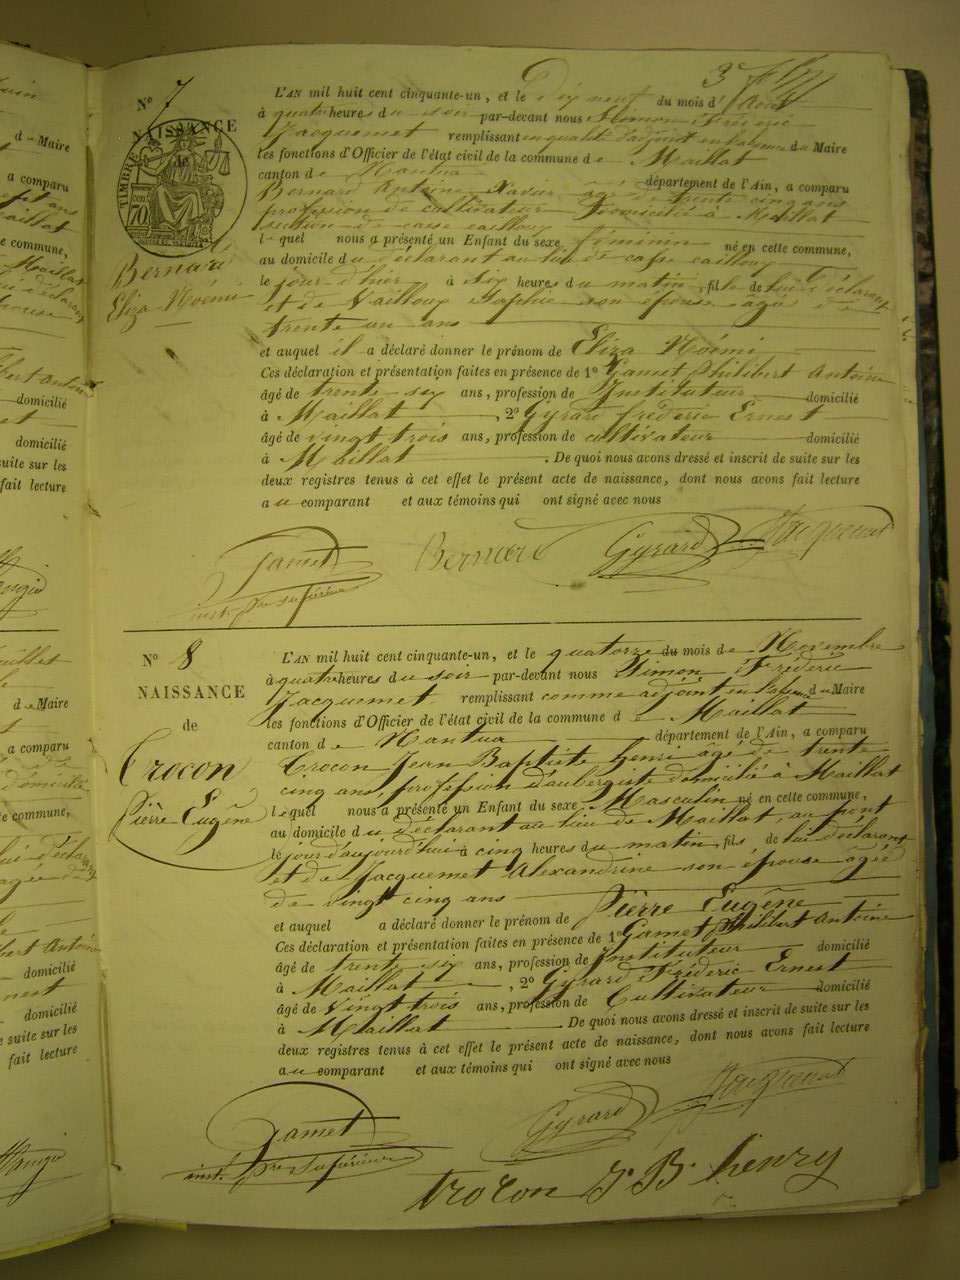 3e
N° 7
NAISSANCE
TIMBRE
70
Bernard
Eliza Noémi
L'AN mil huit cent cinquante-un, et le dix neuf du mois d'Août
à quatre heures du soir par-devant nous Simon Fréderic
Jacquemet remplissant en qualité d'adjoint en l'absence du Maire
les fonctions d'Officier de l'état civil de la commune de Maillat
canton de Nantua département de l'Ain, a comparu
Bernard Antoine Xavier âgé de trente cinq ans
profession de cultivateur domicilié à Maillat
section de casse cailloux
lequel nous a présenté un Enfant du sexe féminin né en cette commune,
au domicile du déclarant au lieu de casse cailloux
le jour d'hier à six heures du matin, fille de lui déclarant
et de Sophie son épouse âgée de
trente un ans
et auquel il a déclaré donner le prénom de Eliza Noémi
Ces déclaration et présentation faites en présence de 1° Gamet Philibert Antoine
âgé de trente six ans, profession de Instituteur domicilié
à Maillat, 2° Gyrard fréderic Ernest
âgé de vingt trois ans, profession de cultivateur domicilié
à Maillat. De quoi nous avons dressé et inscrit de suite sur les
deux registres tenus à cet effet le présent acte de naissance, dont nous avons fait lecture
au comparant et aux témoins qui ont signé avec nous
Gamet Bernard Gyrard Jacquemet
inst. pre supérieur
N° 8
NAISSANCE
de
Crocon
Pièrre Eugêne
L'AN mil huit cent cinquante-un, et le quatorze du mois de Novembre
à quatre heures du soir par-devant nous Simon Fréderic
Jacquemet remplissant comme adjoint en l'absence du Maire
les fonctions d'Officier de l'état civil de la commune de Maillat
canton de Nantua département de l'Ain, a comparu
Crocon Jean Baptiste henri âgé de trente
cinq ans, profession d'aubergiste domicilié à Maillat
lequel nous a présenté un Enfant du sexe Masculin né en cette commune,
au domicile du déclarant au lieu de Maillat, au pont
le jour d'aujourd'hui à cinq heures du matin, fils de lui déclarant
et de Jacquemet Alexandrine son épouse âgée
de vingt cinq ans
et auquel a déclaré donner le prénom de Pièrre Eugêne
Ces déclaration et présentation faites en présence de 1° Gamet Philibert Antoine
âgé de trente six ans, profession de Instituteur domicilié
à Maillat, 2° Gyrard Fréderic Ernest
âgé de Vingt trois ans, profession de Cultivateur domicilié
à Maillat. De quoi nous avons dressé et inscrit de suite sur les
deux registres tenus à cet effet le présent acte de naissance, dont nous avons fait lecture
au comparant et aux témoins qui ont signé avec nous
Gamet Gyrard Jacquemet
inst. pre supérieur
trocon J. B. henry